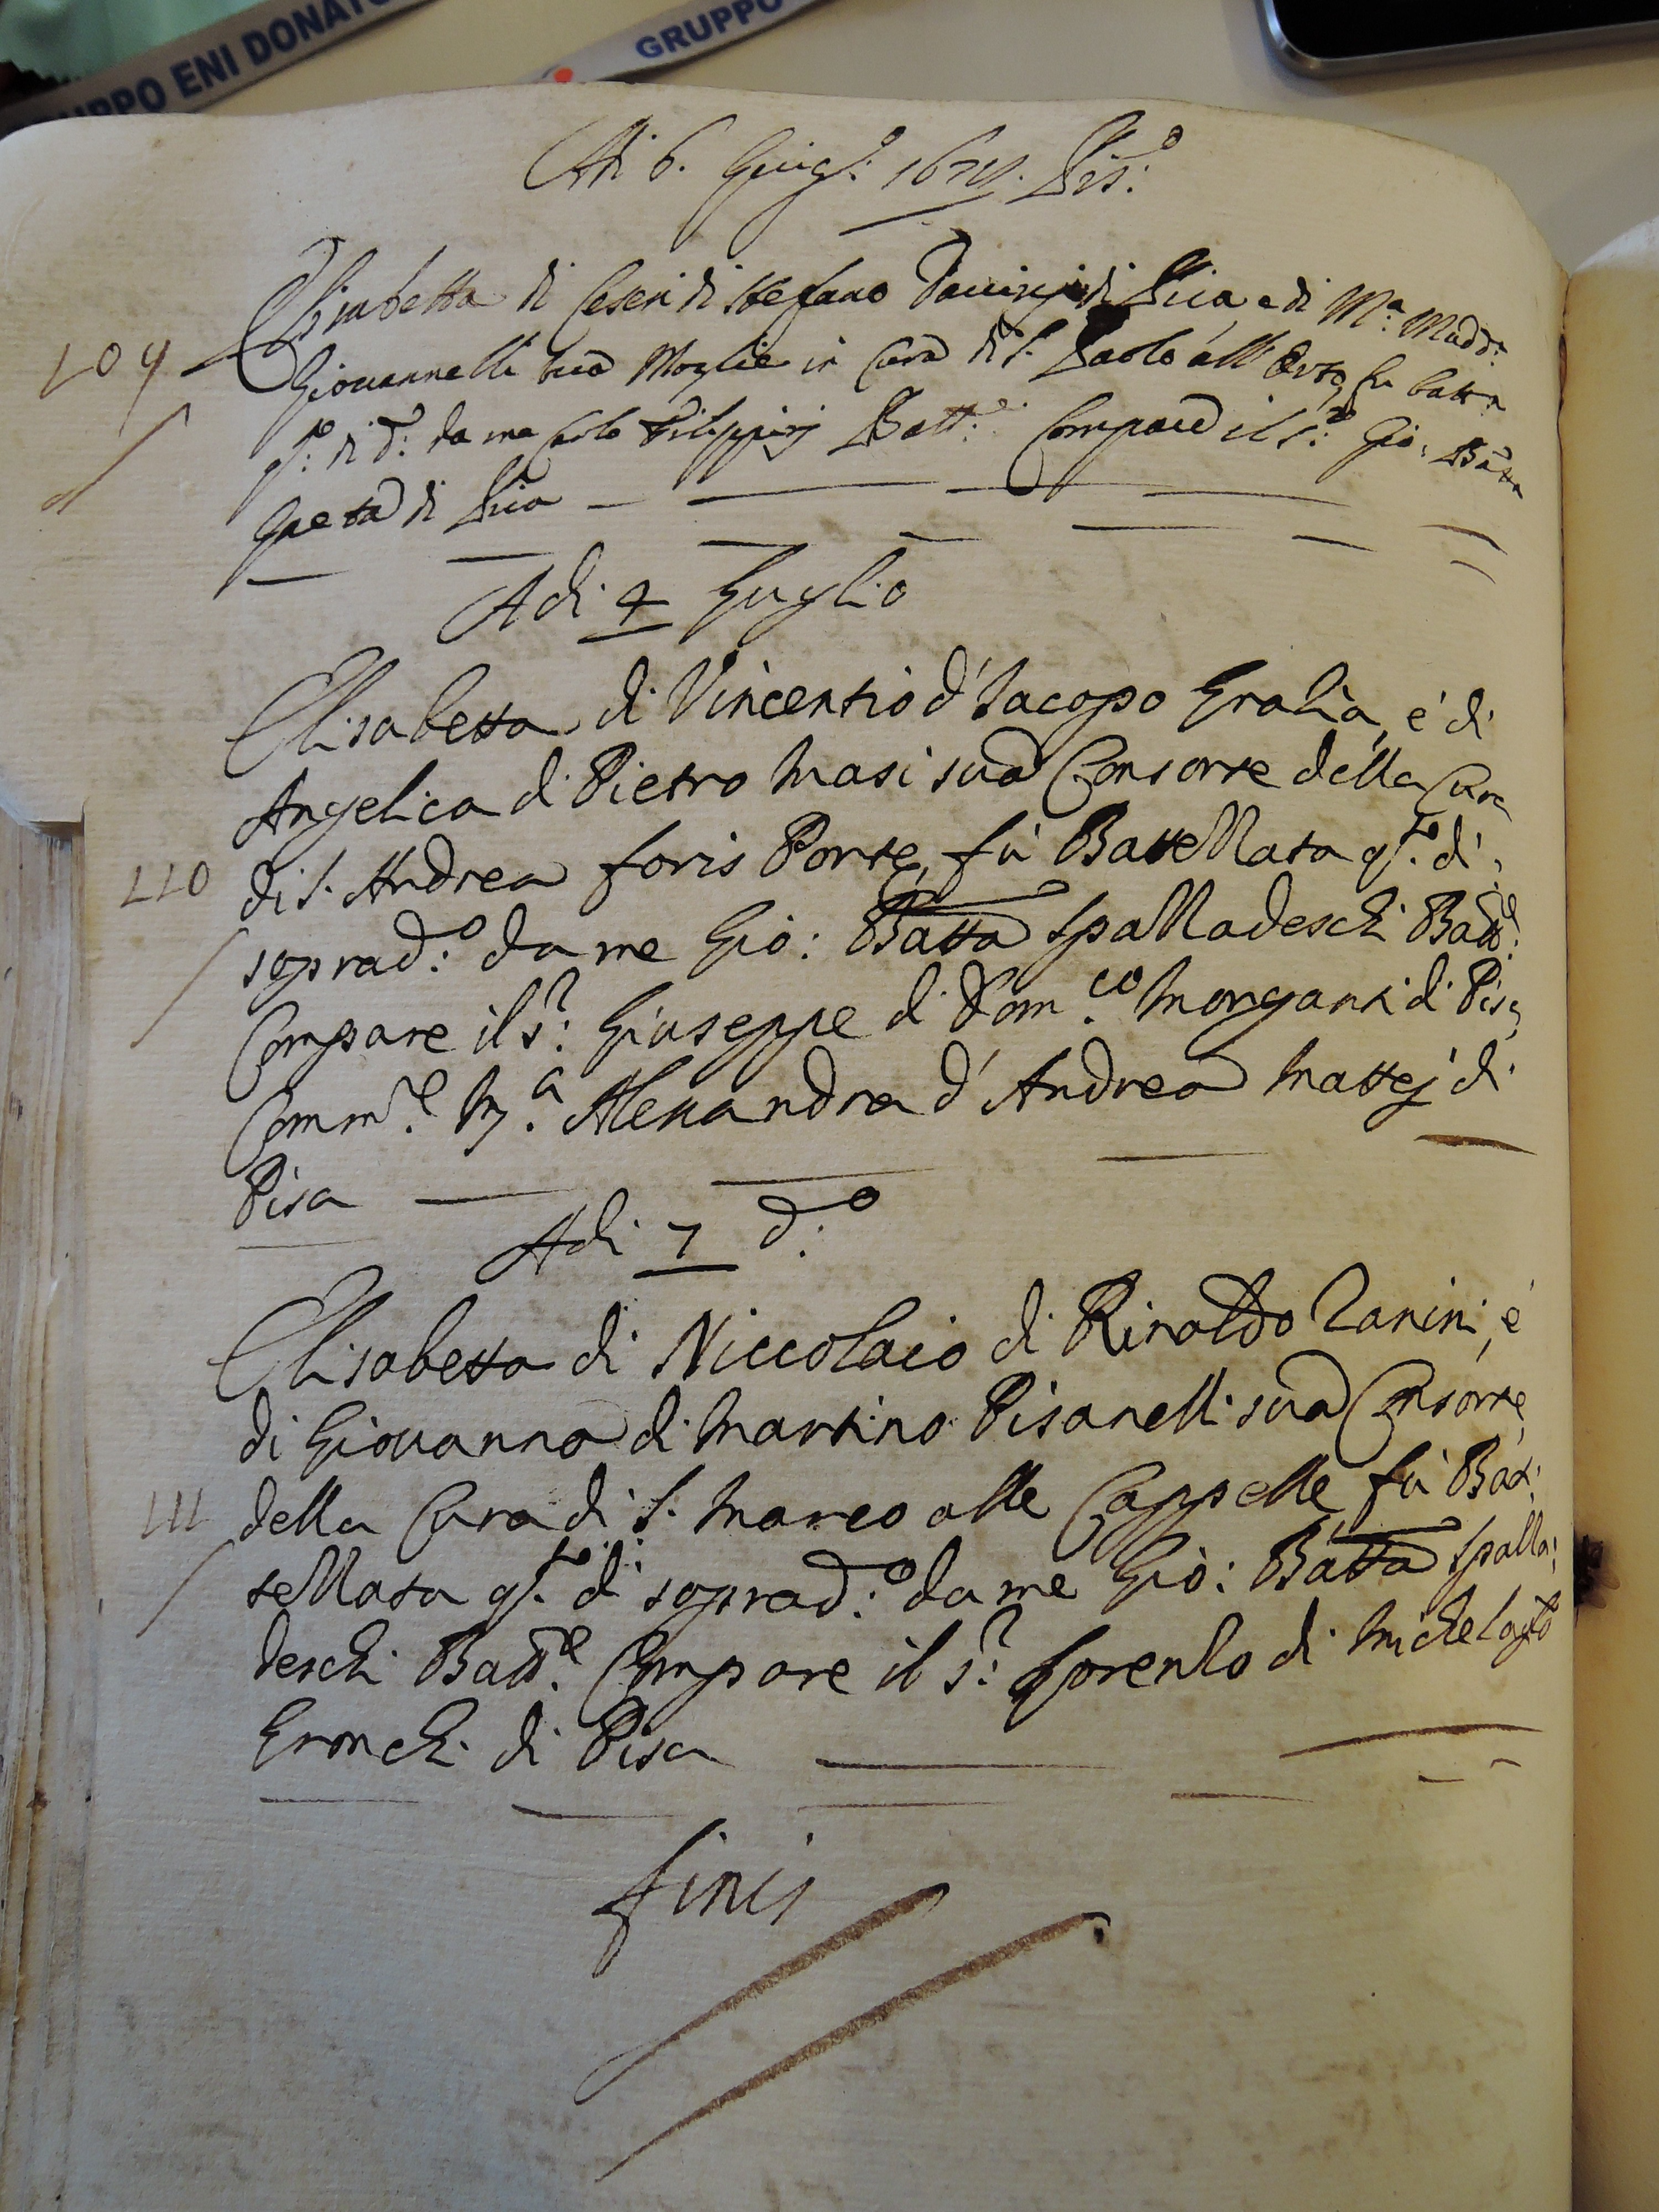 GRUPPO ENI DONATO
GRUPPO
Adi 6. Giug.o Pis.o
109
Elisabetta di Ceseri di Stefano di Pisa e di M.a Madd.a
Giovannelli sua Moglie in Cura di S. Paolo all'Orto fu batta
q.to di d.o da me Carlo Filippini Batt.e Compare il S.r Gio: Batta
Gaeta di Pisa
Adi 4 Luglio
Elisabetta di Vincentio d'Iacopo Gralia, é di
Angelica di Pietro Masi sua Consorte della Cura
110
di S. Andrea foris Porte, fú Battellata q.to dì
soprad.o da me Gio: Batta Spalladeschi Batt.e
Compare il S.r Giuseppe di Dom.co Morganti di Pisa
Comm.e M.a Alessandra d'Andrea Mattej di
Pisa
Adi 7 d.o
Elisabetta di Niccolaio di Rinaldo Zanini, é
di Giovanna di Martino Pisanelli sua Consorte
111
della Cura di S. Marco alle Cappelle, fú Bat:
tellata q.to dì soprad.o da me Gio: Batta Spalla:
deschi Batt.e Compare il S.r Lorenzo di Michelag.lo
Gronchi di Pisa
finis